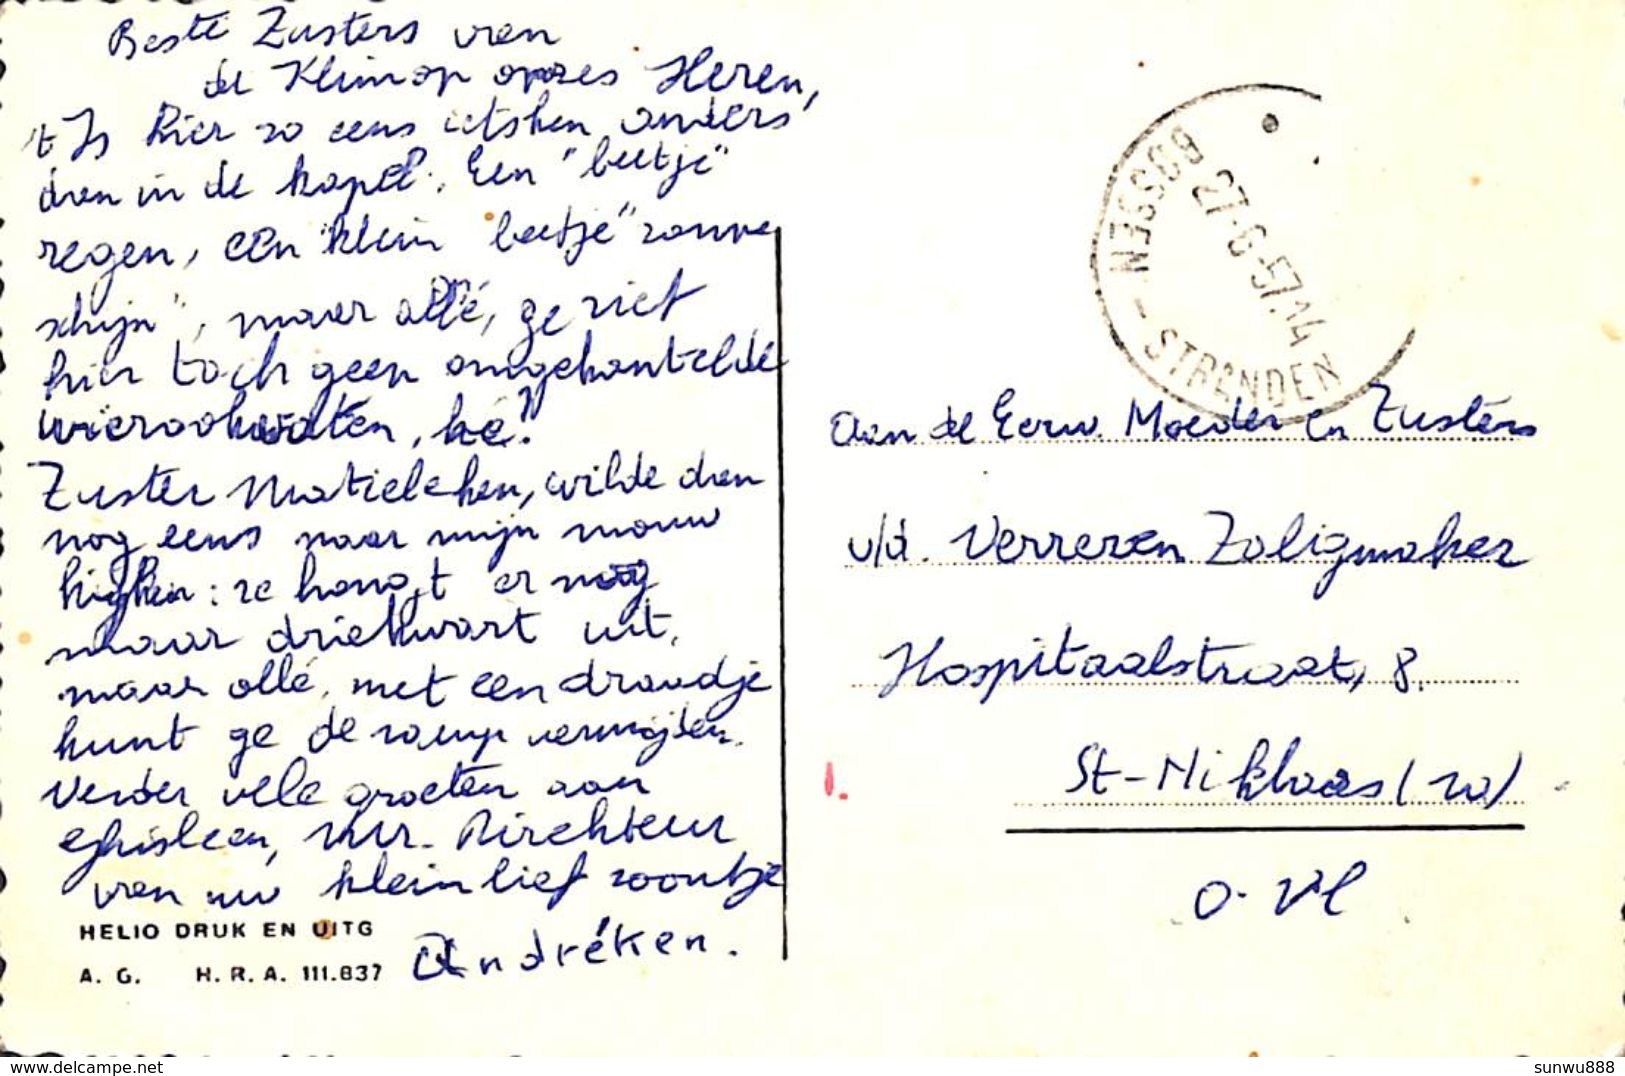 Beste Zusters van
de Klimop onzes Heren,
't Is hier zo eens ietsken anders
dan in de kapel. Een "beetje"
regen, een "klein beetje" zonne
schijn", maar allé, ge ziet
hier toch geen omgekantelde
wierookvaten, hé?
Zuster Matieleken, wilde dan
nog eens naar mijn mouw
kijken: ze hangt er nog
maar driekwart uit,
maar allé, met een draadje
kunt ge de ramp vermijden.
Verder vele groeten aan
Ghisleen, Mr. Direkteur
van uw klein lief zoontje
Andréken.
HELIO DRUK EN UITG
A. G. H. R. A. 111.837
GOSSEN - STRANDEN
27-6-57.14
Aan de Eerw. Moeder en Zusters
v/d. Verrezen Zaligmaker
Hospitaalstraat, 8.
1.
St-Niklaas (W)
O. Vl
delcampe.net
sunwu888